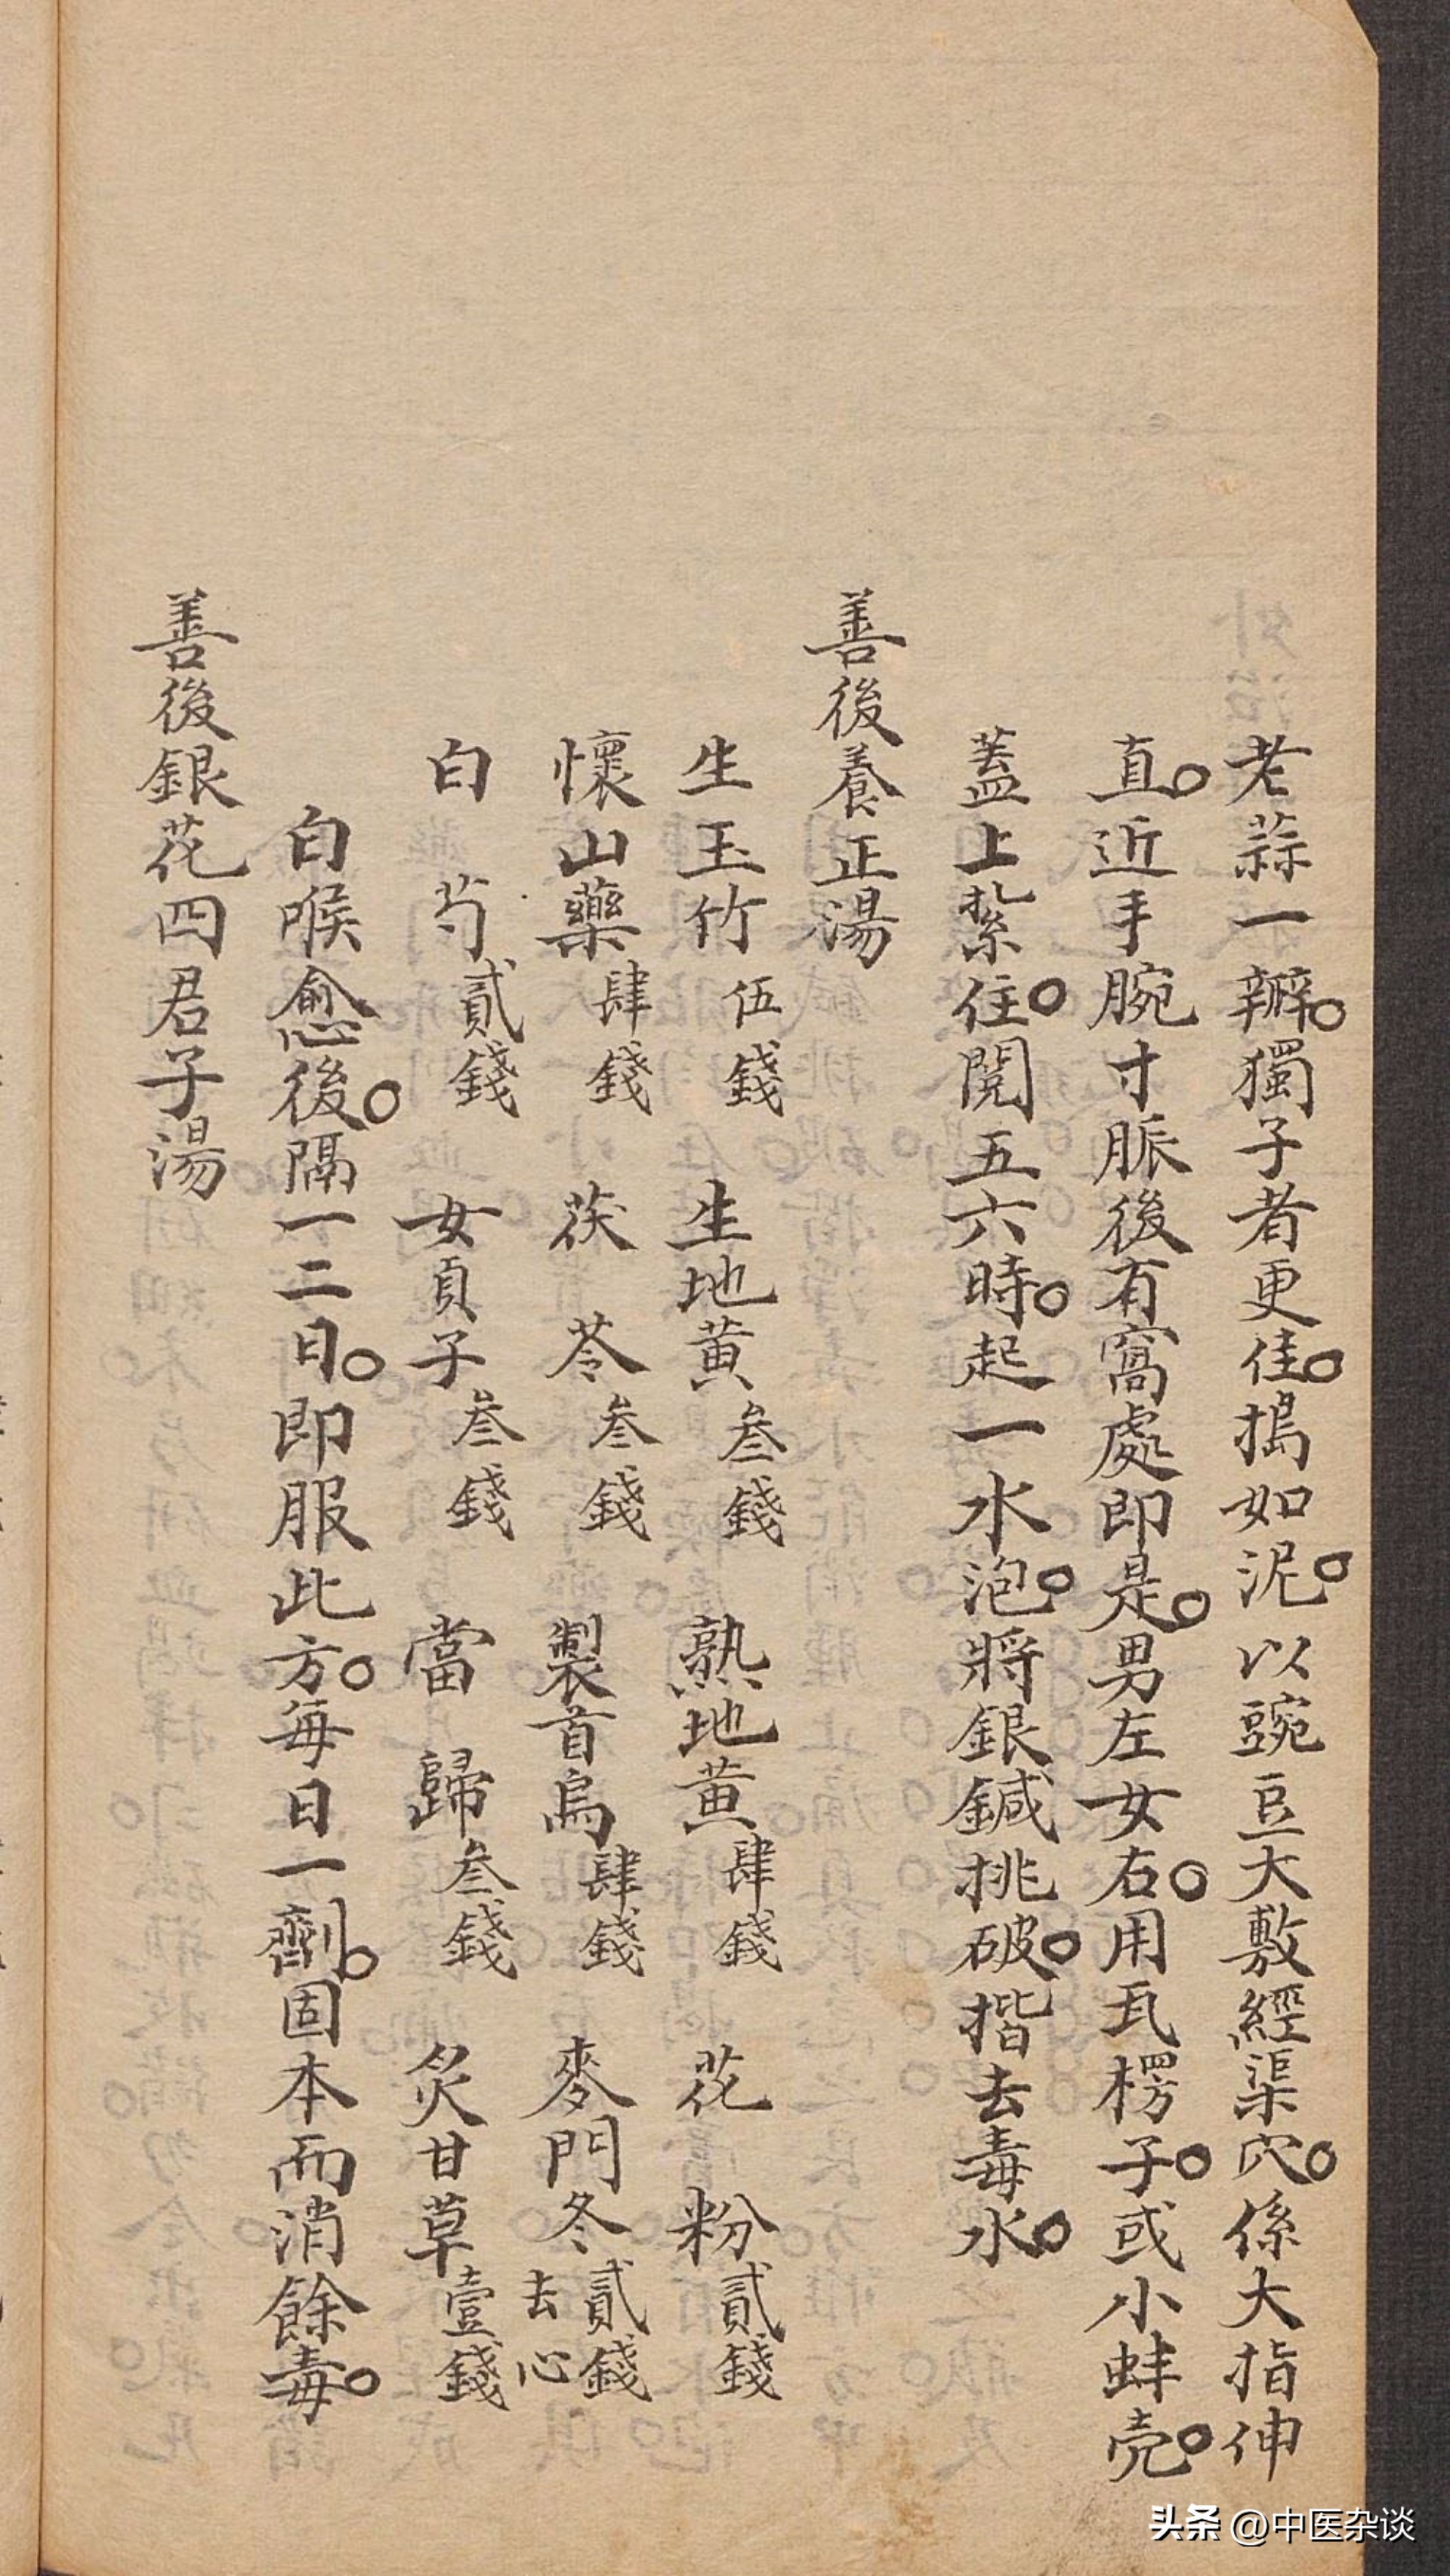 老蒜一瓣。獨子者更佳。搗如泥。以豌豆大敷經渠穴。係大指伸
直。近手腕寸脈後有窩處即是。男左女右。用瓦楞子。或小蚌壳。
蓋上紮住。閱五六時。起一水泡。將銀鍼挑破。揩去毒水。
善後養正湯
生玉竹伍錢 生地黄叁錢 熟地黄肆錢 花粉貳錢
懷山藥肆錢 茯苓叁錢 製首烏肆錢 麥門冬貳錢去心
白芍貳錢 女貞子叁錢 當歸叁錢 炙甘草壹錢
白喉愈後。隔一二日。即服此方。每日一劑。固本而消餘毒。
善後銀花四君子湯
头条 @中医杂谈